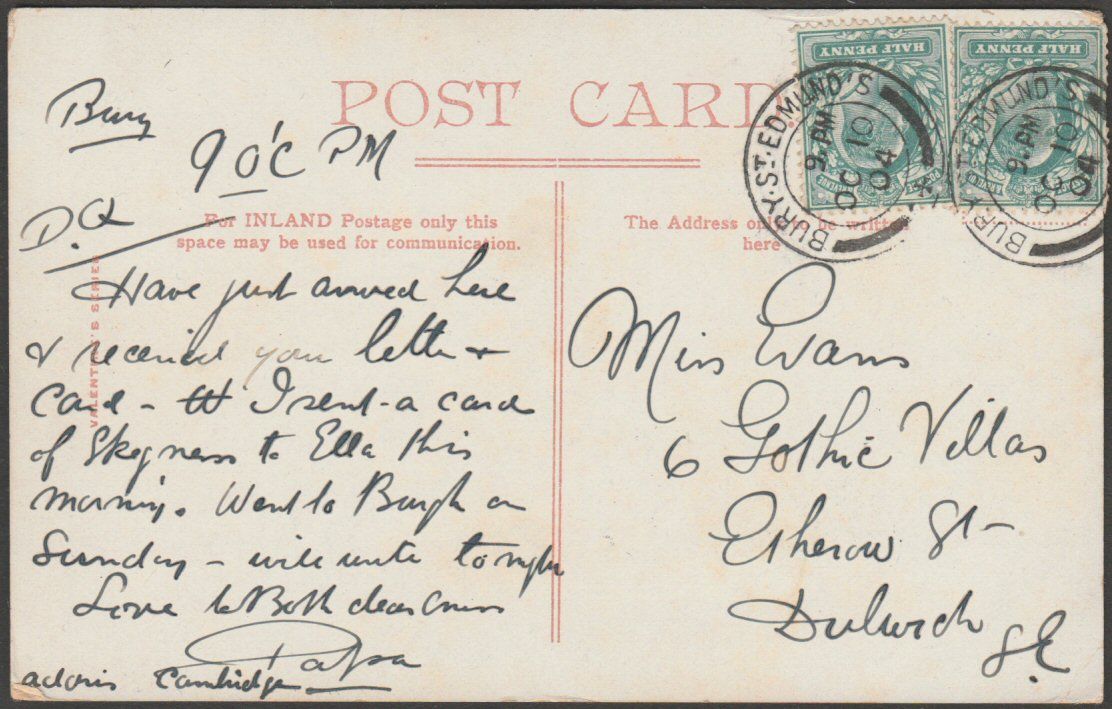 POST CARD.
HALF PENNY
HALF PENNY
BURY ST. EDMUND'S
9. PM
OC 10
04
BURY ST. EDMUND'S
9. PM
OC 10
04
For INLAND Postage only this
space may be used for communication.
The Address only to be written
here
VALENTINE'S SERIES
Bury
9 O'C PM
D.
Have just arrived here
& received your letter &
Card - I sent a card
of Skegness to Ella this
morning. Went to Burgh on
Sunday - will write tonight
Love to Both dear
Papa
Cambridge
Miss Evans
6 Gothic Villas
Etherow St
Dulwich
S.E.